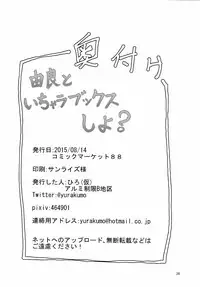 奥付け
由良と
いちゃラブックス
しよ?
発行日:2015/08/14
コミックマーケット88
印刷:サンライズ様
発行した人:ひろ(仮)
アルミ制限B地区
Twitter:@yurakumo
pixiv:464901
連絡用アドレス:yurakumo@hotmail.co.jp
ネットへのアップロード、無断転載などは
ご遠慮ください!